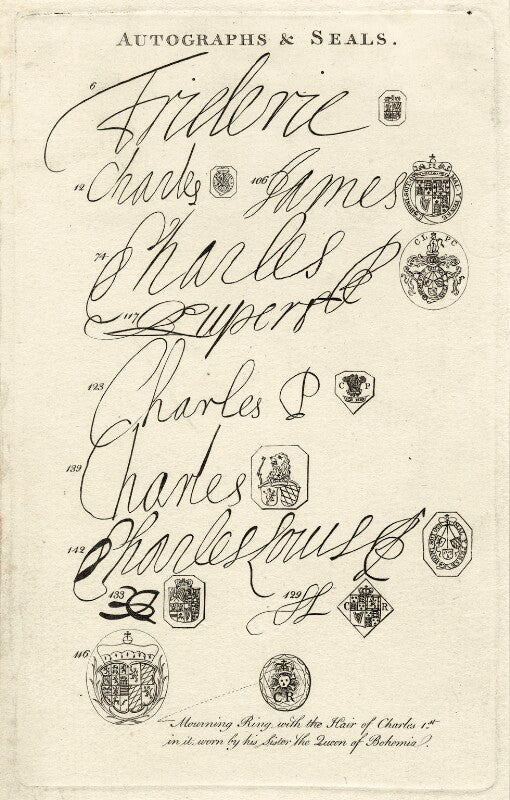 AUTOGRAPHS & SEALS.
6 Frideric
12 Charles 106 James
74 Charles P
CL PC
117 Rupert
123 Charles P C P
139 Charles
142 Charles Louis
133 129 C R
116 CR
Mourning Ring, with the Hair of Charles 1.st
in it, worn by his Sister the Queen of Bohemia.